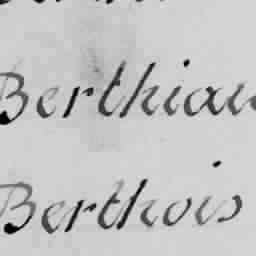 Berthiau
Berthois